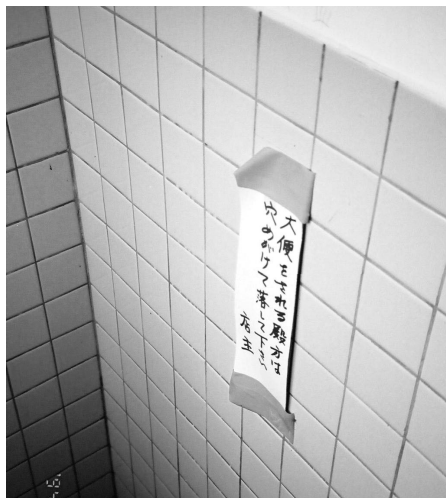 大便をされる殿方は
穴めがけて落して下さい
店主